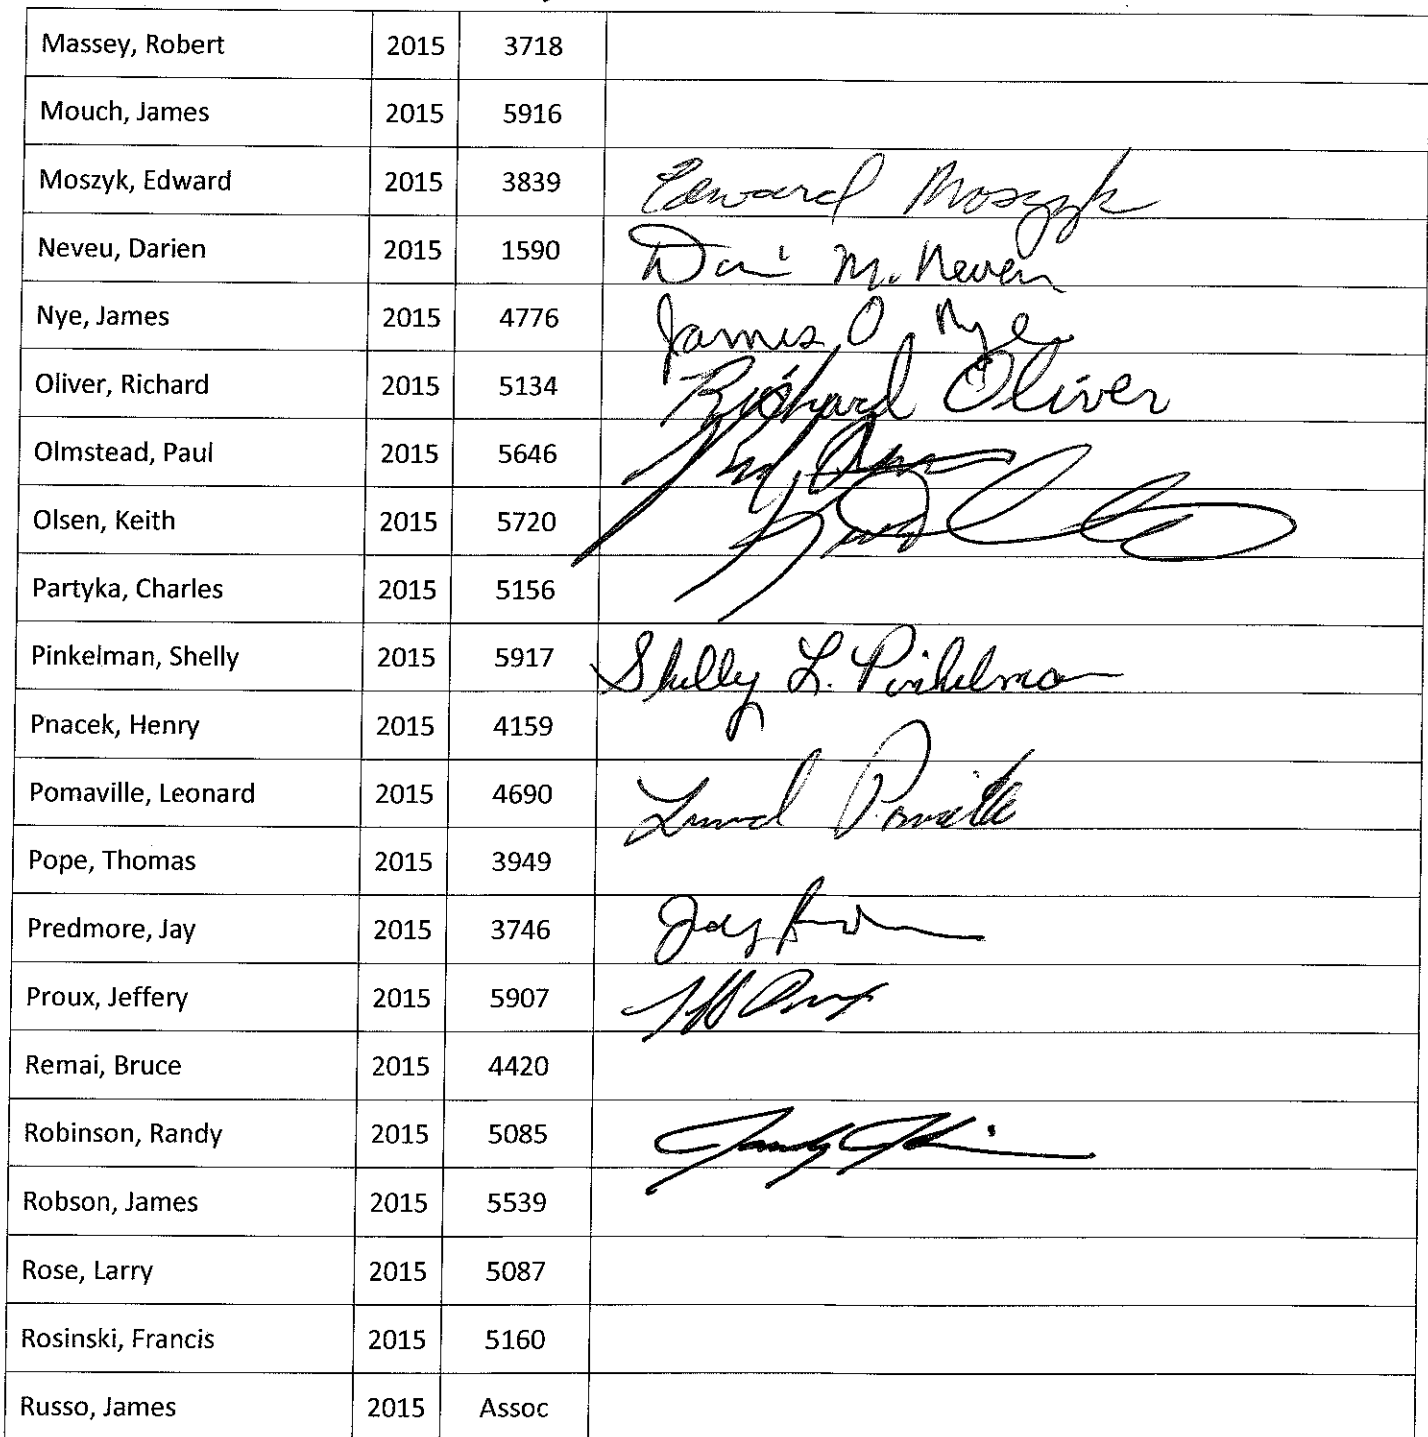 Massey, Robert 2015 3718
Mouch, James 2015 5916
Moszyk, Edward 2015 3839 Edward Moszyk
Neveu, Darien 2015 1590 M. Neveu
Nye, James 2015 4776 James O Nye
Oliver, Richard 2015 5134 Richard Oliver
Olmstead, Paul 2015 5646
Olsen, Keith 2015 5720
Partyka, Charles 2015 5156
Pinkelman, Shelly 2015 5917 Shelly L. Pinkelman
Pnacek, Henry 2015 4159
Pomaville, Leonard 2015 4690
Pope, Thomas 2015 3949
Predmore, Jay 2015 3746 Jay
Proux, Jeffery 2015 5907
Remai, Bruce 2015 4420
Robinson, Randy 2015 5085
Robson, James 2015 5539
Rose, Larry 2015 5087
Rosinski, Francis 2015 5160
Russo, James 2015 Assoc